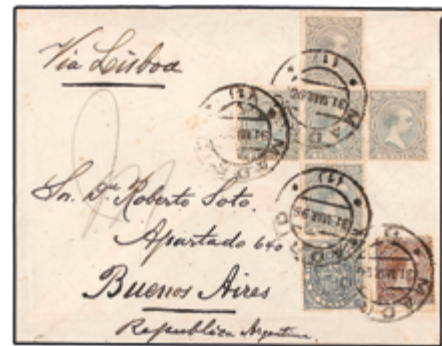 Via Lisboa
Sor. Dn Roberto Soto.
Apartado 640
Buenos Aires
Republica Argentina.
MADRID
31 MAR 95
(11)